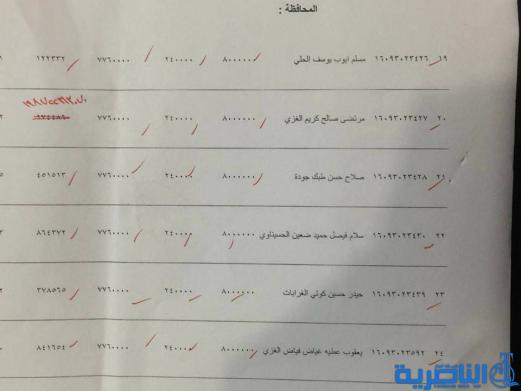 المحافظة :
١٩ ١٦٠٩٣٠٢٣٤٢٦ مسلم ايوب يوسف الحلي ٨٠٠٠٠٠٠ ٢٤٠٠٠٠ ٧٧٦٠٠٠٠ ١٢٢٣٣٢
٢٠ ١٦٠٩٣٠٢٣٤٢٧ مرتضى صالح كريم الغزي ٨٠٠٠٠٠٠ ٢٤٠٠٠٠ ٧٧٦٠٠٠٠
٢١ ١٦٠٩٣٠٢٣٤٢٨ صلاح حسن طبك جودة ٨٠٠٠٠٠٠ ٢٤٠٠٠٠ ٧٧٦٠٠٠٠ ٤٥١٥١٣
٢٢ ١٦٠٩٣٠٢٣٤٣٠ سلام فيصل حميد ضعين الحسيناوي ٨٠٠٠٠٠٠ ٢٤٠٠٠٠ ٧٧٦٠٠٠٠ ٨٦٤٣٧٢
٢٣ ١٦٠٩٣٠٢٣٤٣٩ حيدر حسين كولي الغرابات ٨٠٠٠٠٠٠ ٢٤٠٠٠٠ ٧٧٦٠٠٠٠ ٣٧٨٥٦٥
٢٤ ١٦٠٩٣٠٢٣٥٩٢ يعقوب عطيه غياض فياض الغزي ٨٠٠٠٠٠٠ ٢٤٠٠٠٠ ٧٧٦٠٠٠٠ ٨٤١٦٥٤
الناصرية